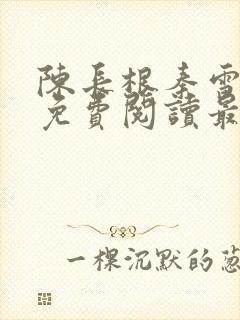 陳長根秦雪
免費閱讀最
一棵沉默的蔥